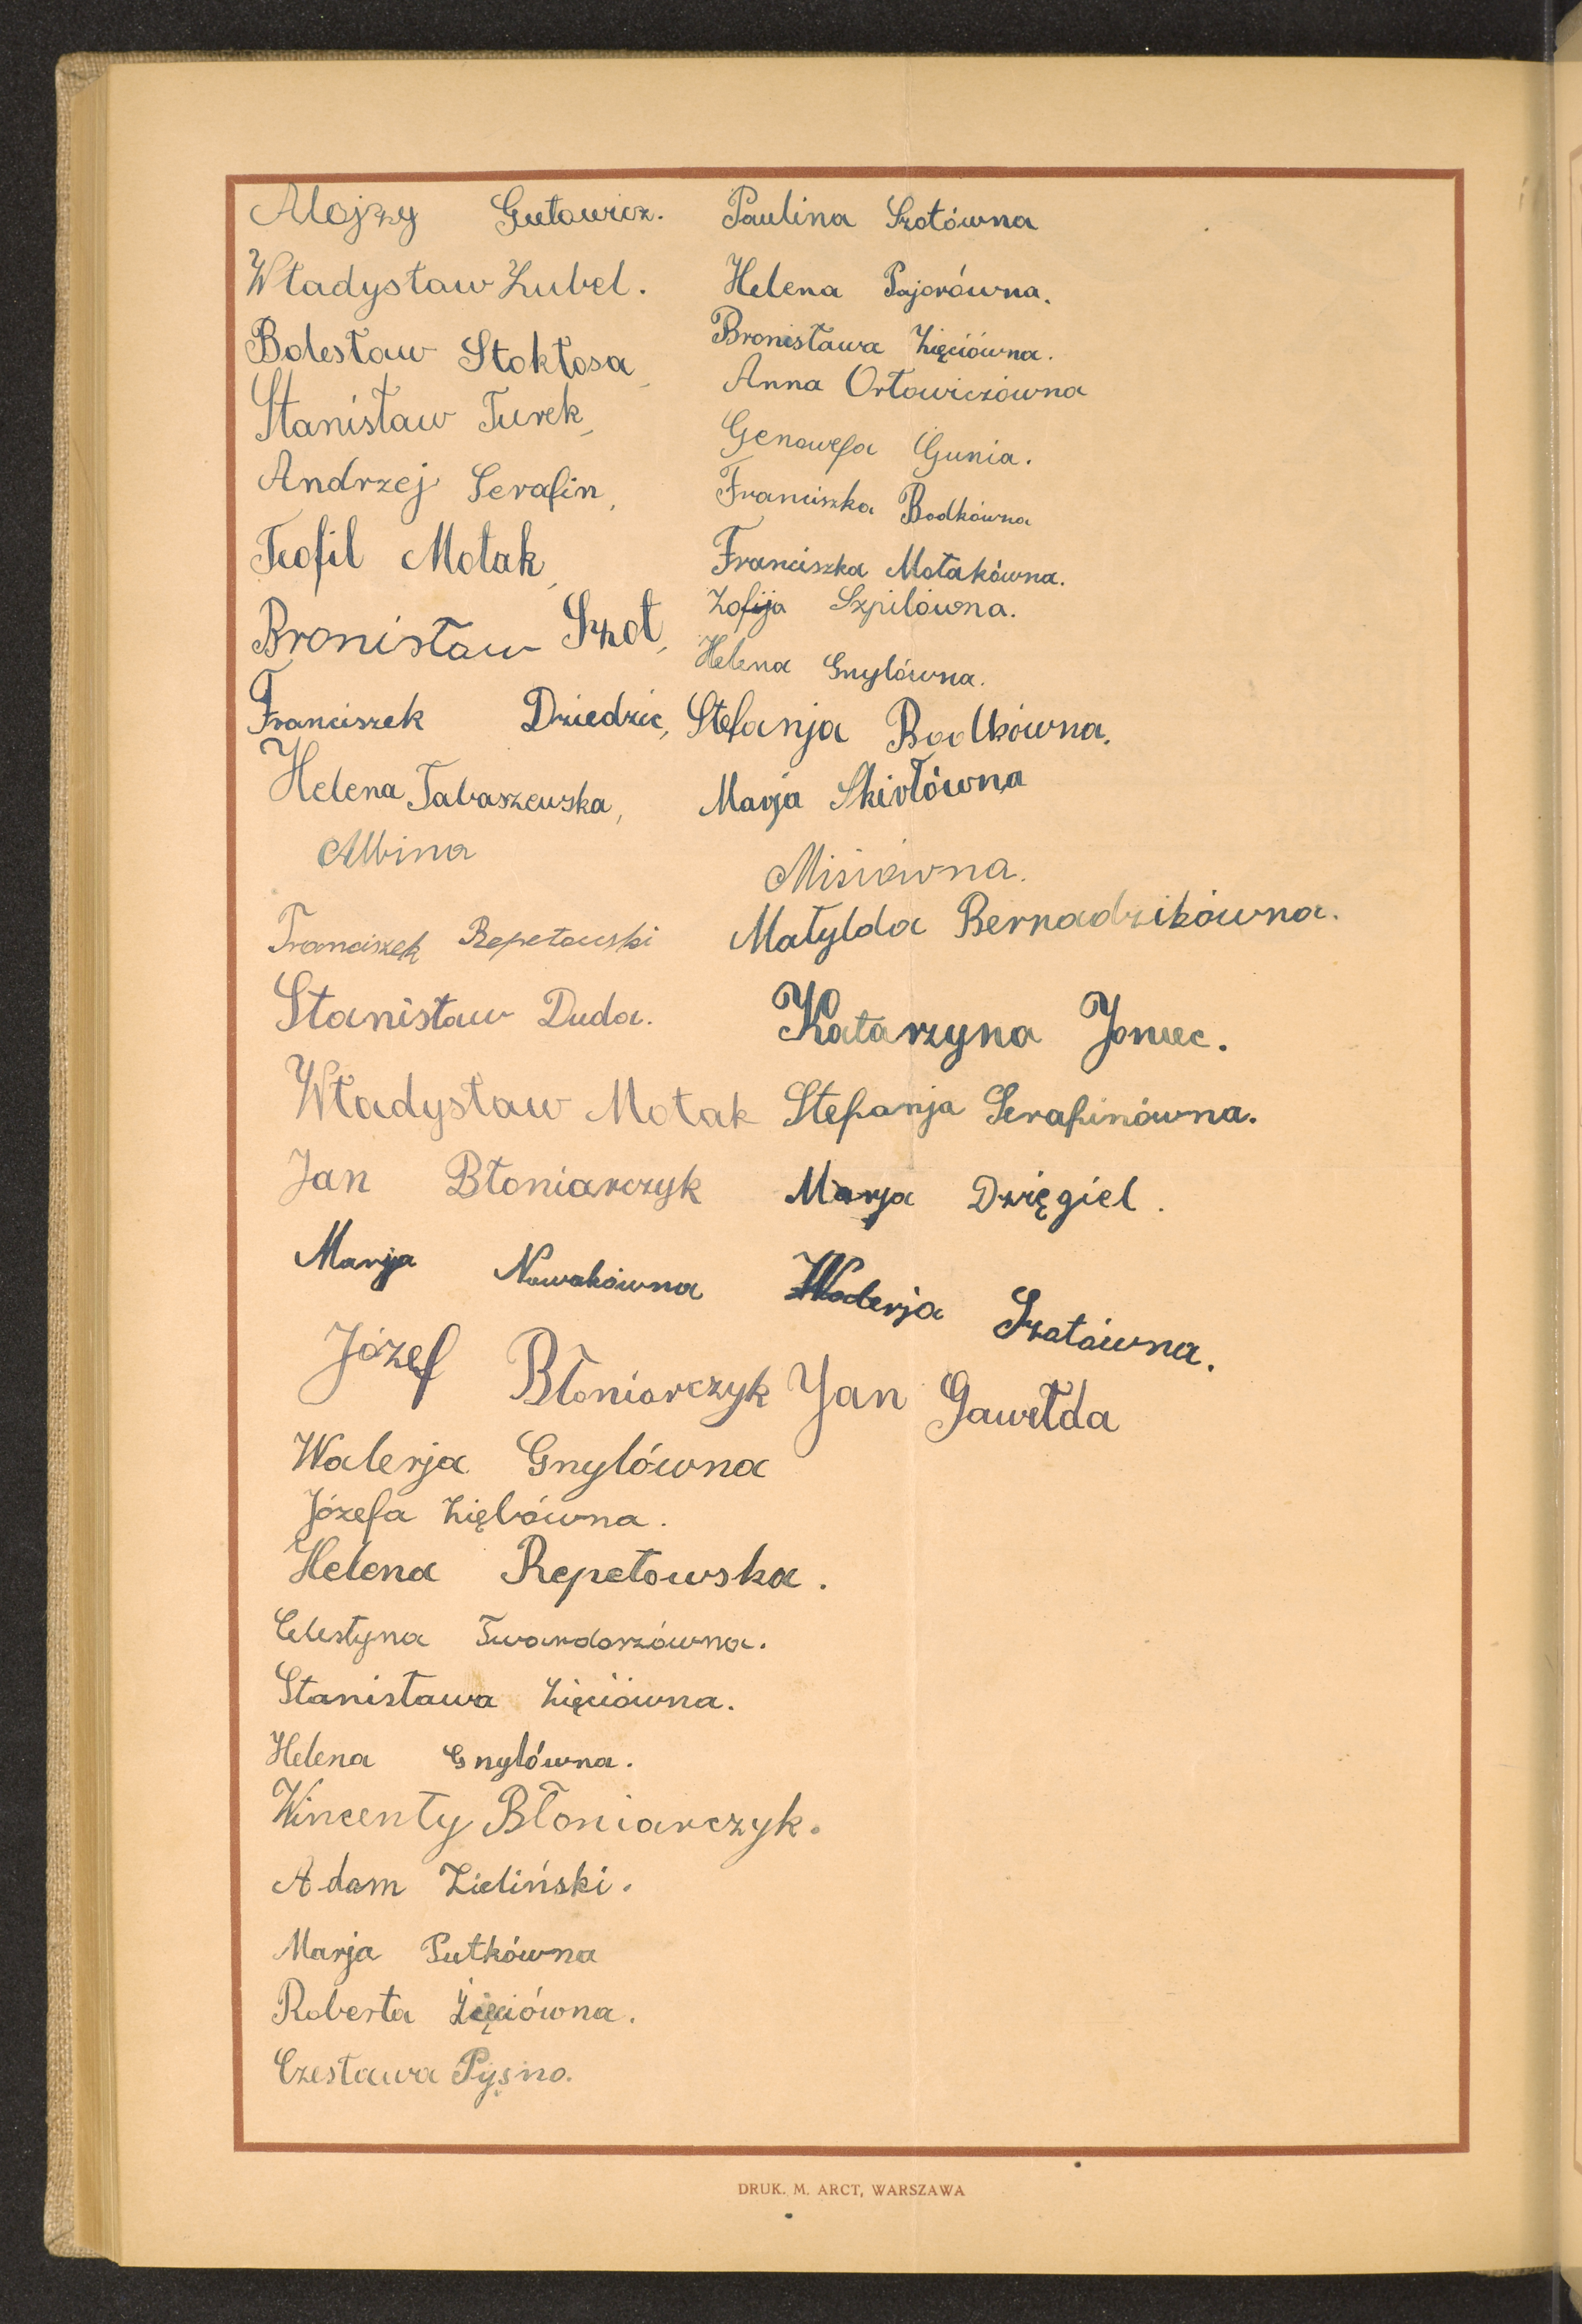 Alojzy Gutowicz.
Władysław Zubel.
Bolesław Stokłosa,
Stanisław Turek,
Andrzej Serafin,
Teofil Motak,
Bronisław Szot,
Franciszek Dziedzic,
Helena Tabaszewska,
Albina Misiówna.
Franciszek Repetowski
Stanisław Duda.
Władysław Motak
Jan Błoniarczyk
Marja Nowakówna
Józef Błoniarczyk
Walerja Gnylówna
Józefa Ziębówna.
Helena Repetowska.
Celestyna Twardorzówna.
Stanisława Zięciówna.
Helena Gnylówna.
Wincenty Błoniarczyk.
Adam Zieliński.
Marja Putkówna
Roberta Zięciówna.
Czesława
Paulina Szotówna
Helena Pajorówna.
Bronisława Zięciówna.
Anna Ortowiczówna
Genowefa Gunia.
Franciszka Bodkówna
Franciszka Motakówna.
Zofija Szpilówna.
Helena Gnylówna.
Stefanja Bodkówna.
Marja Skirłówna
Matylda Bernadzikówna.
Katarzyna Joniec.
Stefanja Serafinówna.
Marja Dzięgiel.
Walerja Szotówna.
Jan Gawełda
DRUK. M. ARCT, WARSZAWA